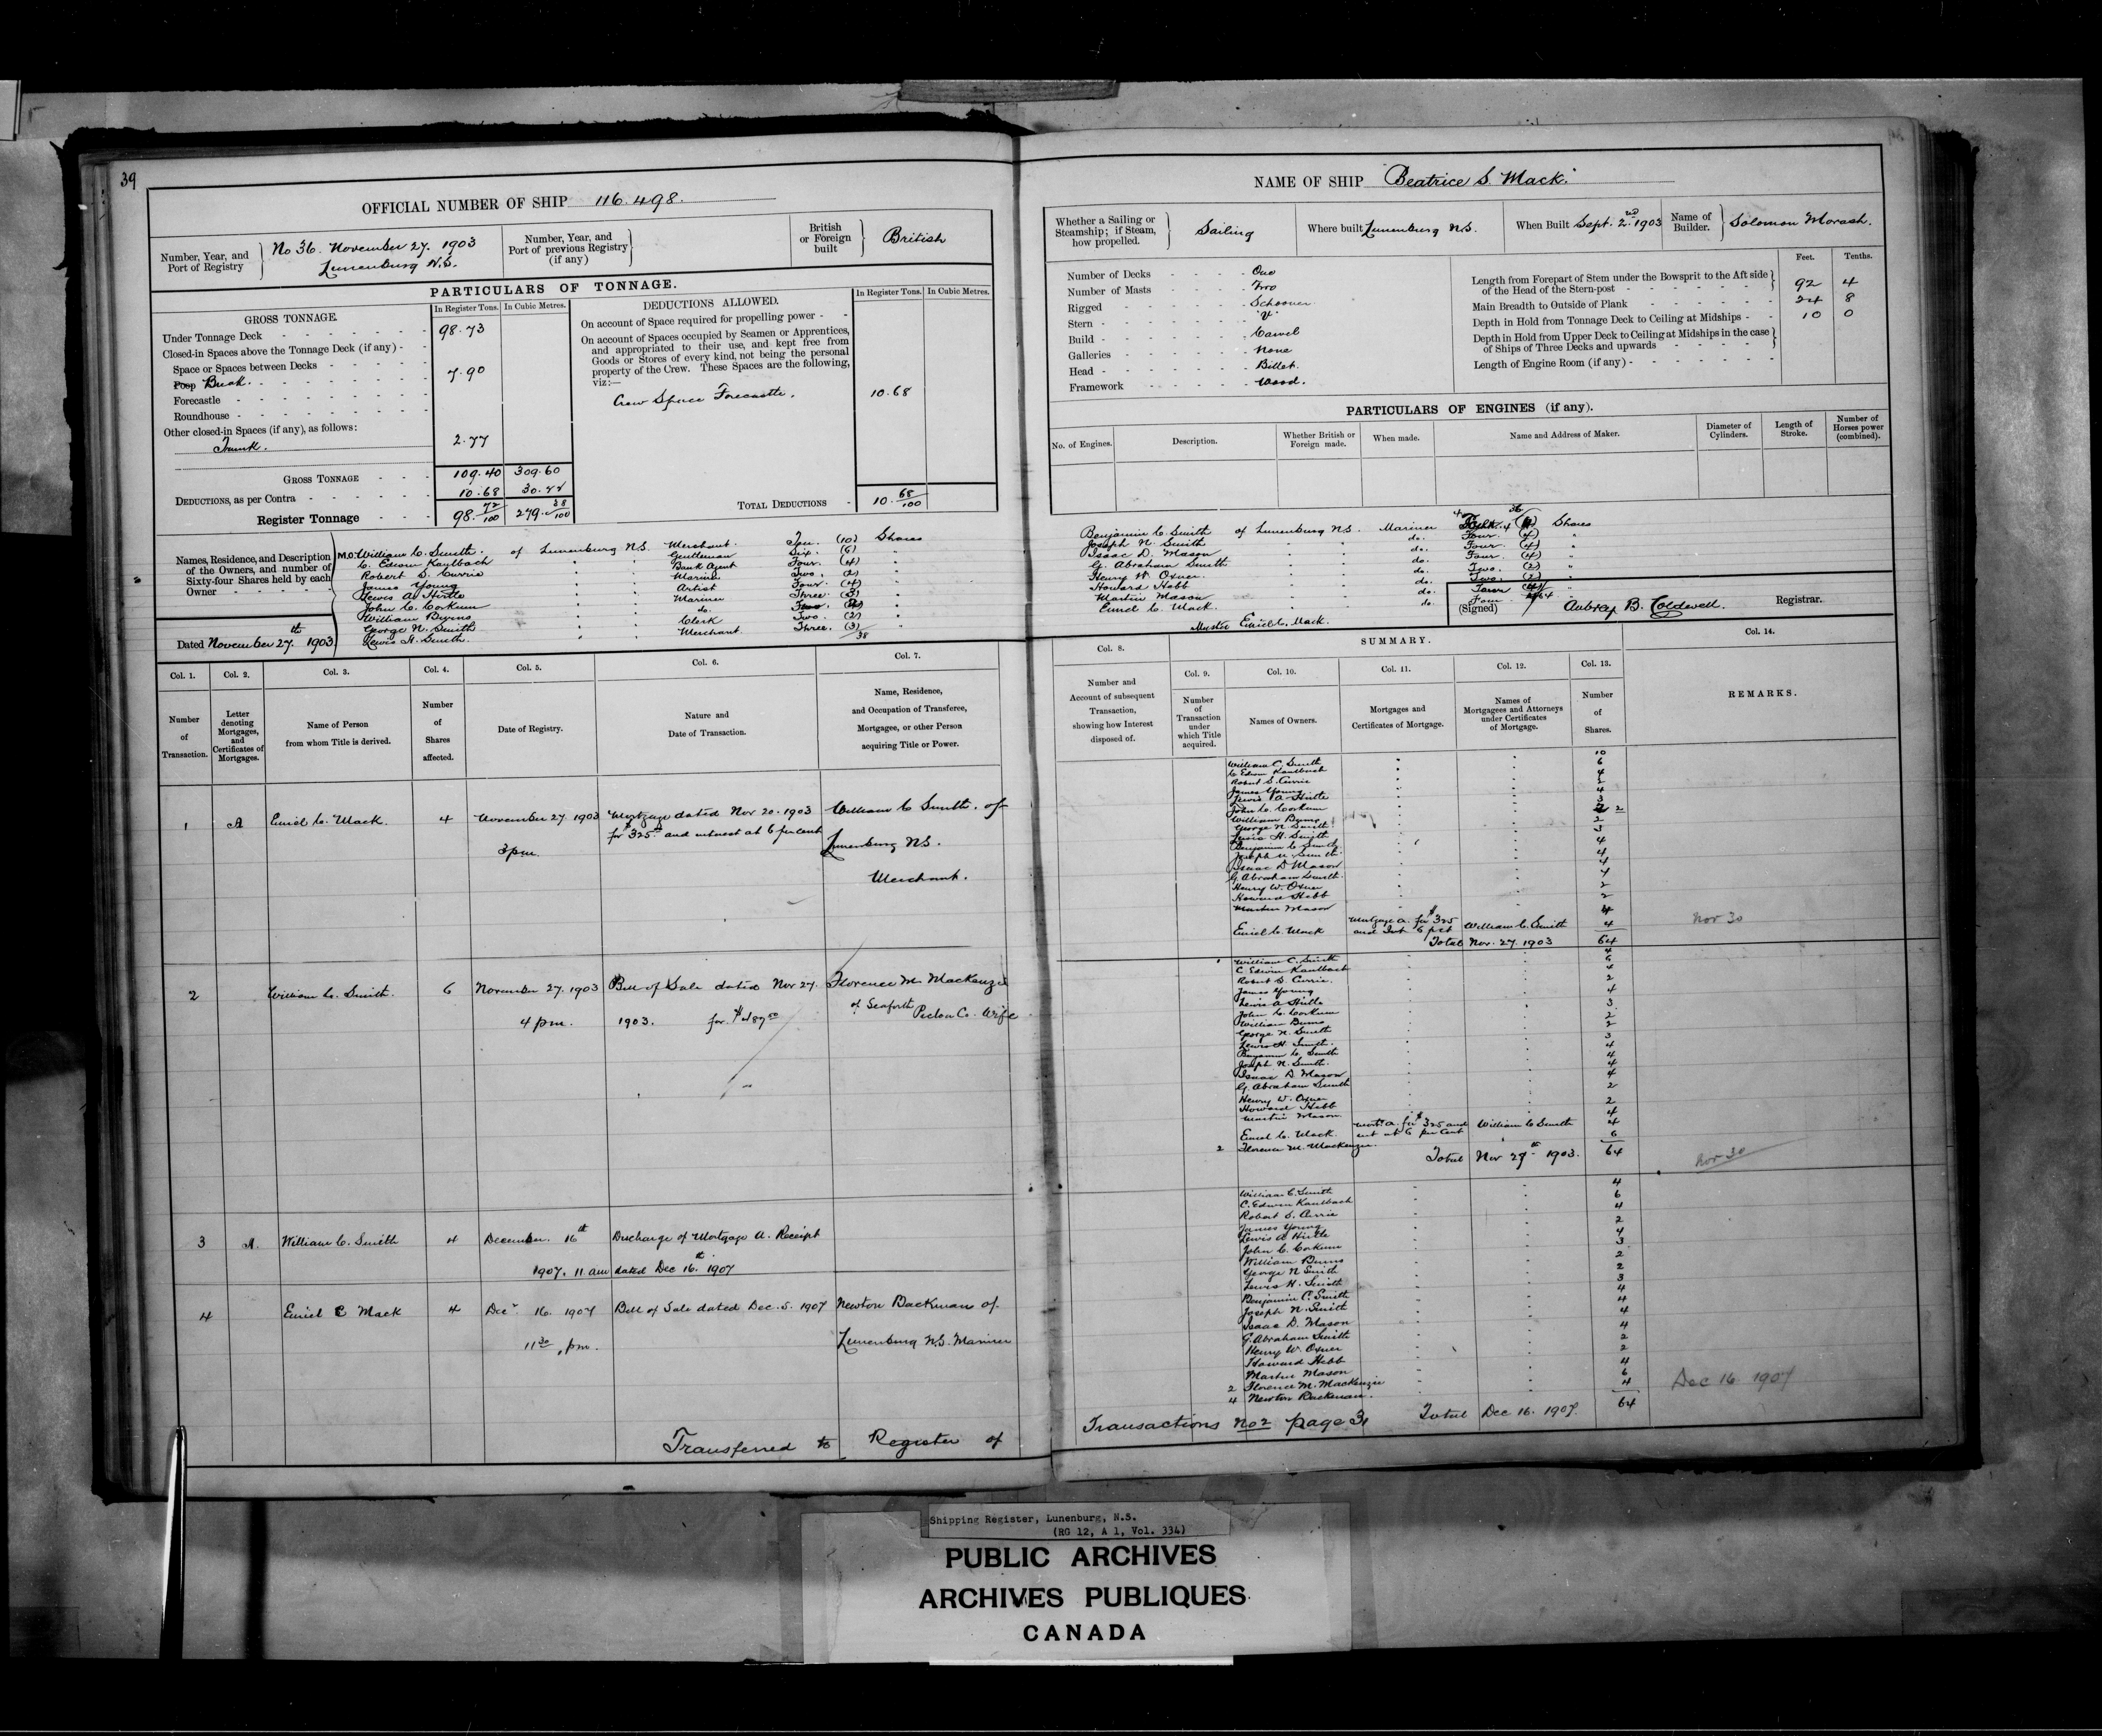 39
OFFICIAL NUMBER OF SHIP 116.498.
Number, Year, and Port of Registry
No 36. November 27. 1903
Lunenburg N.S.
Number, Year, and Port of previous Registry (if any)
British or Foreign built
British
PARTICULARS OF TONNAGE.
GROSS TONNAGE.
In Register Tons.
In Cubic Metres.
Under Tonnage Deck 98.73
Closed-in Spaces above the Tonnage Deck (if any)
Space or Spaces between Decks
Poop Break. 7.90
Forecastle
Roundhouse
Other closed-in Spaces (if any), as follows:
Trunk. 2.77
GROSS TONNAGE 109.40 309.60
DEDUCTIONS, as per Contra 10.68 30.22
Register Tonnage 98. 72/100 279. 38/100
DEDUCTIONS ALLOWED.
In Register Tons.
In Cubic Metres.
On account of Space required for propelling power
On account of Spaces occupied by Seamen or Apprentices,
and appropriated to their use, and kept free from
Goods or Stores of every kind, not being the personal
property of the Crew. These Spaces are the following,
viz:—
Crew Space Forecastle. 10.68
TOTAL DEDUCTIONS 10. 68/100
Names, Residence, and Description
of the Owners, and number of
Sixty-four Shares held by each
Owner
M.O. William C. Smith. of Lunenburg N.S. Merchant. Ten. (10) Shares
C. Edwin Kaulbach " " Gentleman Six. (6) "
Robert S. Currie " " Bank Agent Four. (4) "
James Young " " Mariner Two. (2) "
Lewis A. Hirtle " " Artist Four. (4) "
John C. Corkum " " Mariner Three. (3) "
William Burns " " do. Two. (2) "
George N. Smith " " Clerk Two. (2) "
Lewis H. Smith. " " Merchant. Three. (3) "
38
Dated November 27.th 1903
NAME OF SHIP Beatrice S. Mack.
Whether a Sailing or Steamship; if Steam, how propelled.
Sailing
Where built Lunenburg N.S.
When Built Sept. 2.nd 1903
Name of Builder.
Solomon Morash.
Number of Decks One
Number of Masts Two
Rigged Schooner
Stern "V"
Build Carvel
Galleries None
Head Billet
Framework Wood.
Feet. Tenths.
Length from Forepart of Stem under the Bowsprit to the Aft side
of the Head of the Stern-post 92 4
Main Breadth to Outside of Plank 24 8
Depth in Hold from Tonnage Deck to Ceiling at Midships 10 0
Depth in Hold from Upper Deck to Ceiling at Midships in the case
of Ships of Three Decks and upwards
Length of Engine Room (if any)
PARTICULARS OF ENGINES (if any).
No. of Engines.
Description.
Whether British or Foreign made.
When made.
Name and Address of Maker.
Diameter of Cylinders.
Length of Stroke.
Number of Horses power (combined).
Benjamin C. Smith of Lunenburg N.S. Mariner Shares
Joseph N. Smith " " do. Four. (4) "
Isaac D. Mason " " do. Four (4) "
G. Abraham Smith " " do. Four (4) "
Henry W. Oxner. " " do. Two. (2) "
Howard Hebb " " do. Two. (2) "
Martin Mason " " do. Four (4)
Emiel C. Mack. " " do. Four
64
Master Emiel C. Mack.
(Signed) Aubrey B. Coldwell. Registrar.
Col. 1.
Number of Transaction.
Col. 2.
Letter denoting Mortgages, and Certificates of Mortgages.
Col. 3.
Name of Person from whom Title is derived.
Col. 4.
Number of Shares affected.
Col. 5.
Date of Registry.
Col. 6.
Nature and Date of Transaction.
Col. 7.
Name, Residence, and Occupation of Transferee, Mortgagee, or other Person acquiring Title or Power.
Col. 8.
Number and Account of subsequent Transaction, showing how Interest disposed of.
SUMMARY.
Col. 9.
Number of Transaction under which Title acquired.
Col. 10.
Names of Owners.
Col. 11.
Mortgages and Certificates of Mortgage.
Col. 12.
Names of Mortgagees and Attorneys under Certificates of Mortgage.
Col. 13.
Number of Shares.
Col. 14.
REMARKS.
1 A Emiel C. Mack. 4 November 27. 1903 Mortgage dated Nov 20. 1903 William C Smith. of
3 pm. for $325 00 and interest at 6 per cent Lunenburg N.S.
Merchant.
2 William C. Smith. 6 November 27. 1903 Bill of Sale dated Nov 27. Florence M. MacKenzie
4 pm. 1903. for $487 50 of Seaforth Pictou Co. Wife
3 A. William C. Smith 4 December 16th Discharge of Mortgage A. Receipt
1907. 11 am dated Dec 16.th 1907
4 Emiel C Mack 4 Decr 16. 1907 Bill of Sale dated Dec. 5. 1907 Newton Backman of
11 30 pm. Lunenburg N.S. Mariner
Transferred to Register of
William C. Smith 10
C Edwin Kaulbach 6
Robert S. Currie 4
James Young 2
Lewis A Hirtle 4
John C. Corkum 3
William Burns 2
George N Smith 2
Lewis H. Smith 3
Benjamin C Smith 4
Joseph N. Smith 4
Isaac D Mason 4
G Abraham Smith. 4
Henry W. Oxner 2
Howard Hebb 2
Martin Mason 4
Emiel C. Mack Mortgage A. for $325 and Int 6 pct William C. Smith 4
Total Nov. 27. 1903 64
Nov 30
William C. Smith 4
C. Edwin Kaulbach 6
Robert S. Currie. 4
James Young 2
Lewis A Hirtle 4
John C. Corkum 3
William Burns 2
George N. Smith 2
Lewis H. Smith. 3
Benjamin C. Smith 4
Joseph N. Smith. 4
Isaac D. Mason 4
G. Abraham Smith 4
Henry W. Oxner 2
Howard Hebb 2
Martin Mason 4
Emiel C. Mack. Mort. A for $325 and int at 6 per cent William C Smith 4
2 Florence M. MacKenzie. 6
Total Nov 27th 1903. 64
Nov 30
William C. Smith 4
C. Edwin Kaulbach 6
Robert S. Currie 4
James Young 2
Lewis A Hirtle 4
John C. Corkum 3
William Burns 2
George N Smith 2
Lewis H. Smith 3
Benjamin C. Smith 4
Joseph N. Smith 4
Isaac D. Mason 4
G. Abraham Smith 4
Henry W. Oxner 2
Howard Hebb 2
Martin Mason 4
2 Florence M. MacKenzie 6
4 Newton Backman. 4
Total Dec 16. 1907. 64
Dec 16 1907
Transactions No 2 page 31
Shipping Register, Lunenburg, N.S.
(RG 12, A 1, Vol. 334)
PUBLIC ARCHIVES
ARCHIVES PUBLIQUES
CANADA